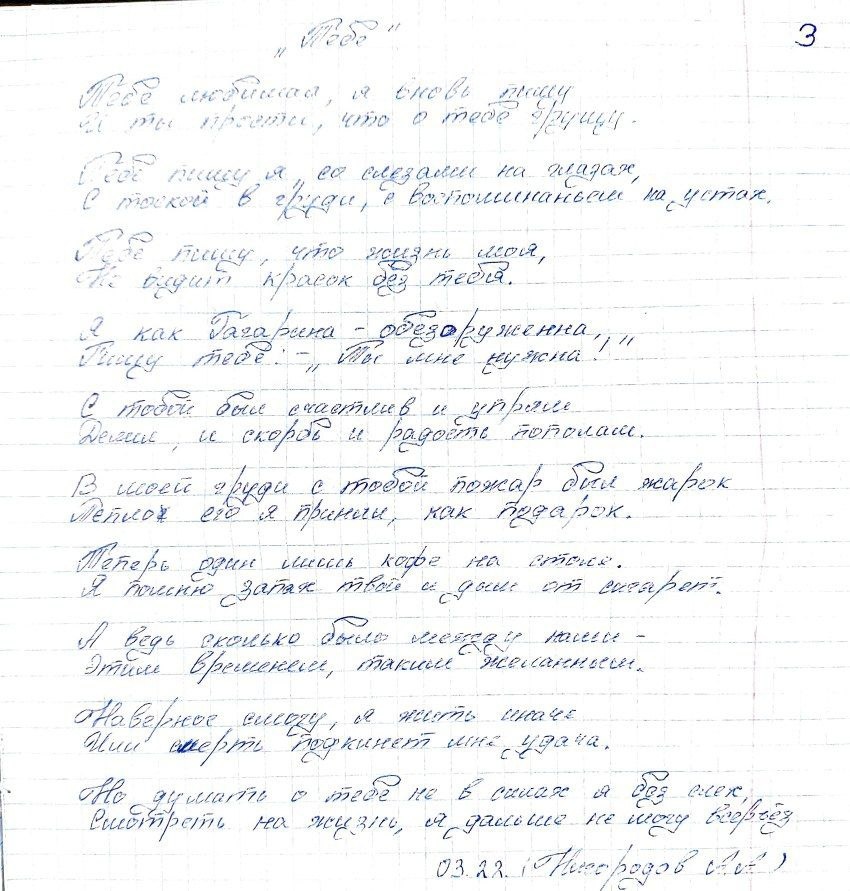 „Тебе"
3
Тебе любимая, я вновь пишу
И ты прости, что о тебе грущу.
Тебе пишу я, со слезами на глазах,
С тоской в груди, с воспоминаньем на устах.
Тебе пишу, что жизнь моя,
Не видит красок без тебя.
Я как Гагарина - обезоруженна,
Пишу тебе: - „Ты мне нужна!"
С тобой был счастлив и упрям
Делил, и скорбь и радость пополам.
В моей груди с тобой пожар был жарок
Тепло его я принял, как подарок.
Теперь один лишь кофе на столе.
Я помню запах твой и дым от сигарет.
А ведь сколько было между нами -
Этим временем, таким желанным.
Наверное смогу, я жить иначе
Или смерть подкинет мне удача.
Но думать о тебе не в силах я без слёз,
Смотреть на жизнь, я дальше не могу всерьёз
03.22. ( А.А )